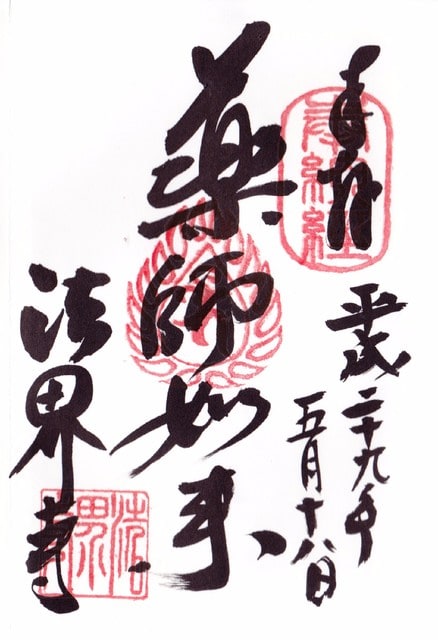 奉拝
平成二十九年
五月十八日
薬師如来
法界寺
法界